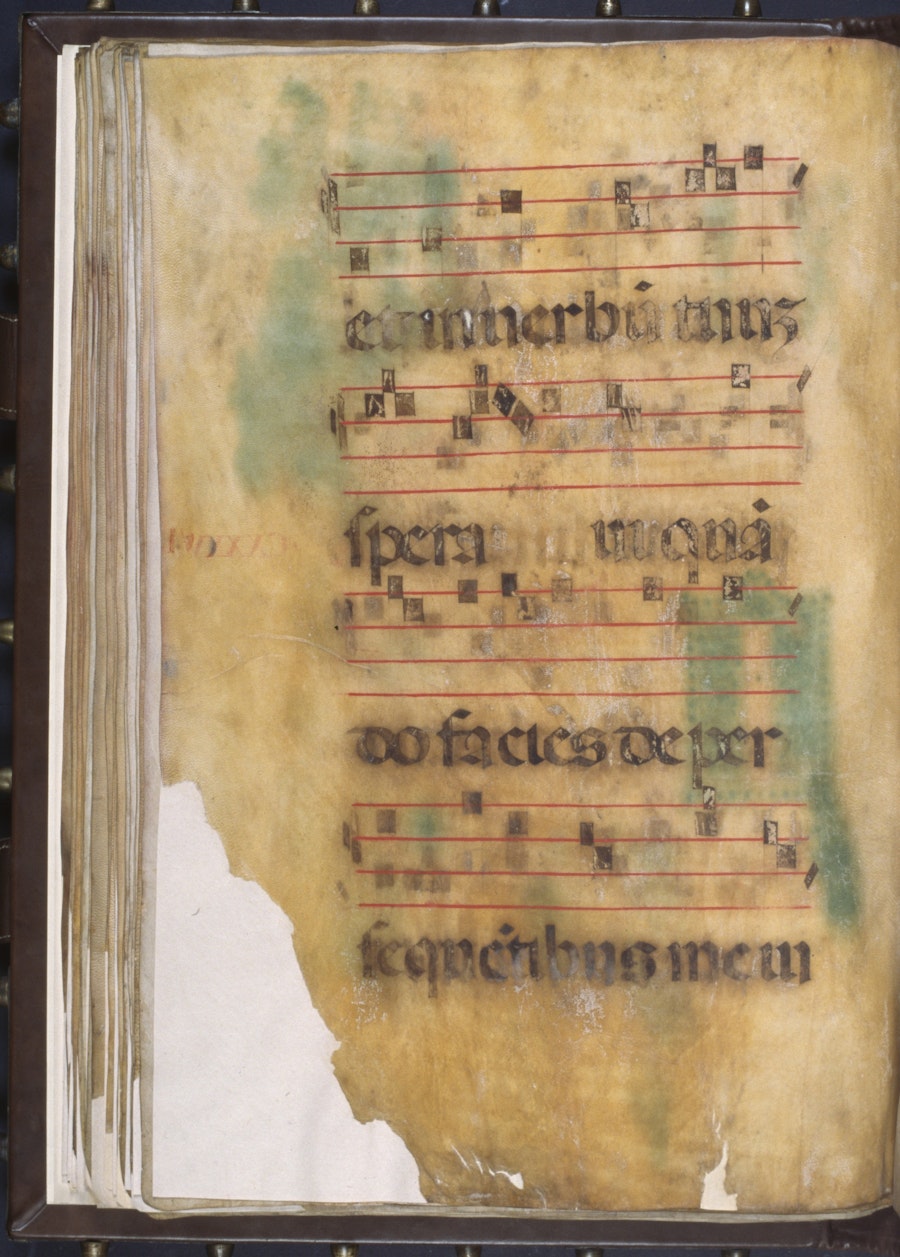 et in uerbū tuuꝫ
spera ui quā
do facies de per
sequētibus me iu